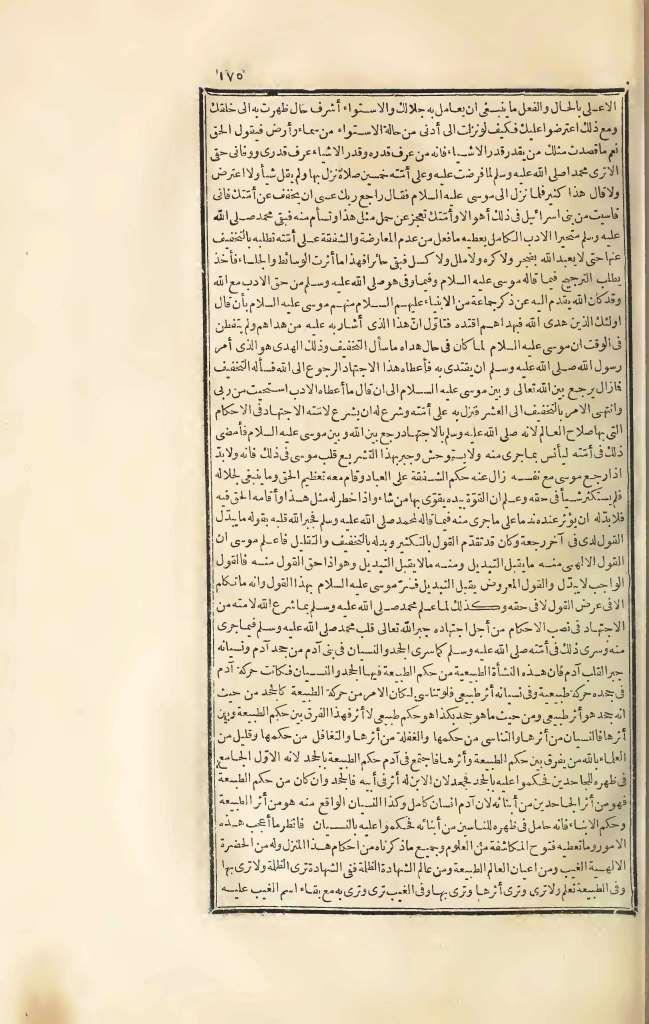 ١٧٥
الاعلى بالحال والفعل ما ينبغى ان يعامل به جلالك والاستواء أشرف حال ظهرت به الى خلقك
ومع ذلك اعترضوا عليك فكيف لو نزلت الى أدنى من حالة الاستواء من سماء وأرض فيقول الحق
نعم ما قصدت مثلك من يقدر قدر الاشياء فانه من عرف قدره وقدر الاشياء عرف قدرى ووفانى حقى
الا ترى محمدا صلى الله عليه وسلم لما فرضت عليه وعلى أمته خمسين صلاة نزل بها ولم يقل شيأ ولا اعترض
ولا قال هذا كثير فلما نزل الى موسى عليه السلام فقال راجع ربك عسى ان يخفف عن أمتك فانى
قاسيت من بنى اسرائيل فى ذلك أهوالا وأمتك تعجز عن حمل مثل هذا وتسأم منه فبقى محمد صلى الله
عليه وسلم متحيرا الادب الكامل يعطيه ما فعل من عدم المعارضة والشفقة على أمته تطلبه بالتخفيف
عنها حتى لا يعبد الله بضجر ولا كره ولا ملل ولا كسل فبقى حائرا فهذا ما أثرت الوسائط والجلساء فأخذ
يطلب الترجيح فيما قاله موسى عليه السلام وفيما وفى هو صلى الله عليه وسلم من حق الادب مع الله
وقد كان الله يقدم اليه عن ذكر جماعة من الانبياء عليهم السلام منهم موسى عليه السلام بأن قال
اولئك الذين هدى الله فبهداهم اقتده فتأول ان هذا الذى أشار به عليه من هداهم ولم يتفطن
فى الوقت ان موسى عليه السلام لما كان فى حال هداه ما سأل التخفيف وذلك الهدى هو الذى أمر
رسول الله صلى الله عليه وسلم ان يقتدى به فأعطاه هذا الاجتهاد الرجوع الى الله فسأله التخفيف
فما زال يرجع بين الله تعالى وبين موسى عليه السلام الى ان قال ما أعطاه الادب استحييت من ربى
وانتهى الامر بالتخفيف الى العشر فنزل به على أمته وشرع له ان يشرع لامته الاجتهاد فى الاحكام
التى بها صلاح العالم لانه صلى الله عليه وسلم بالاجتهاد رجع بين الله وبين موسى عليه السلام فأمضى
ذلك فى أمته ليأنس بما جرى منه ولا يستوحش وجبر بهذا التشريع قلب موسى فى ذلك فانه ولا بد
اذا رجع موسى مع نفسه زال عنه حكم الشفقة على العباد وقام معه تعظيم الحق وما ينبغى لجلاله
فلم يستكثر شيأ فى حقه وعلم ان القوة بيده يقوى بها من شاء واذا خطر له مثل هذا وأقامه الحق فيه
فلا بد له ان يؤثر عنده ندما على ما جرى منه فيما قاله لمحمد صلى الله عليه وسلم فجبر الله قلبه بقوله ما يبدل
القول لدى فى آخر رجعة وكان قد تقدم القول بالتكثير وبدله بالتخفيف والتقليل فاعلم موسى ان
القول الالهى منه ما يقبل التبديل ومنه ما لا يقبل التبديل وهو اذا حق القول منه فالقول
الواجب لا يبدل والقول المعروض يقبل التبديل فسر موسى عليه السلام بهذا القول وانه ما تكلم
الا فى عرض القول لا فى حقه وكذلك لما علم محمد صلى الله عليه وسلم بما شرع الله لامته من
الاجتهاد فى نصب الاحكام من أجل اجتهاده جبر الله تعالى قلب محمد صلى الله عليه وسلم فيما جرى
منه وسرى ذلك فى أمته صلى الله عليه وسلم كما سرى الجحد والنسيان فى بنى آدم من جحد آدم ونسيانه
جبر القلب آدم فان هذه النشأة الطبيعية من حكم الطبيعة فيها الجحد والنسيان فكانت حركة آدم
فى جحده حركة طبيعية وفى نسيانه أثر طبيعى فلو تناسى لكان الامر من حركة الطبيعة كالجحد من حيث
انه جحد هو أثر طبيعى ومن حيث ما هو جحد بكذا هو حكم طبيعى لا أثر فهذا الفرق بين حكم الطبيعة وبين
أثرها فالنسيان من أثرها والتناسى من حكمها والغفلة من أثرها والتغافل من حكمها وقليل من
العلماء بالله من يفرق بين حكم الطبيعة وأثرها فاجتمع فى آدم حكم الطبيعة بالجحد لانه الاول الجامع
فى ظهره للجاحدين فحكموا عليه بالجحد فجحد لان الابن له أثر فى أبيه فالجحد وان كان من حكم الطبيعة
فهو من أثر الجاحدين من أبنائه لان آدم انسان كامل وكذا النسيان الواقع منه هو من أثر الطبيعة
وحكم الابناء فانه حامل فى ظهره للناسين من أبنائه فحكموا عليه بالنسيان فانظر ما أعجب هذه
الامور وما تعطيه فتوح المكاشفة من العلوم وجميع ما ذكرناه من احكام هذا المنزل وله من الحضرة
الالهية الغيب ومن اعيان العالم الطبيعة ومن عالم الشهادة الظلمة ففى الشهادة ترى الظلمة ولا ترى بها
وفى الطبيعة تعلم ولا ترى وترى أثرها وترى بها وفى الغيب ترى وترى به مع بقاء اسم الغيب عليه